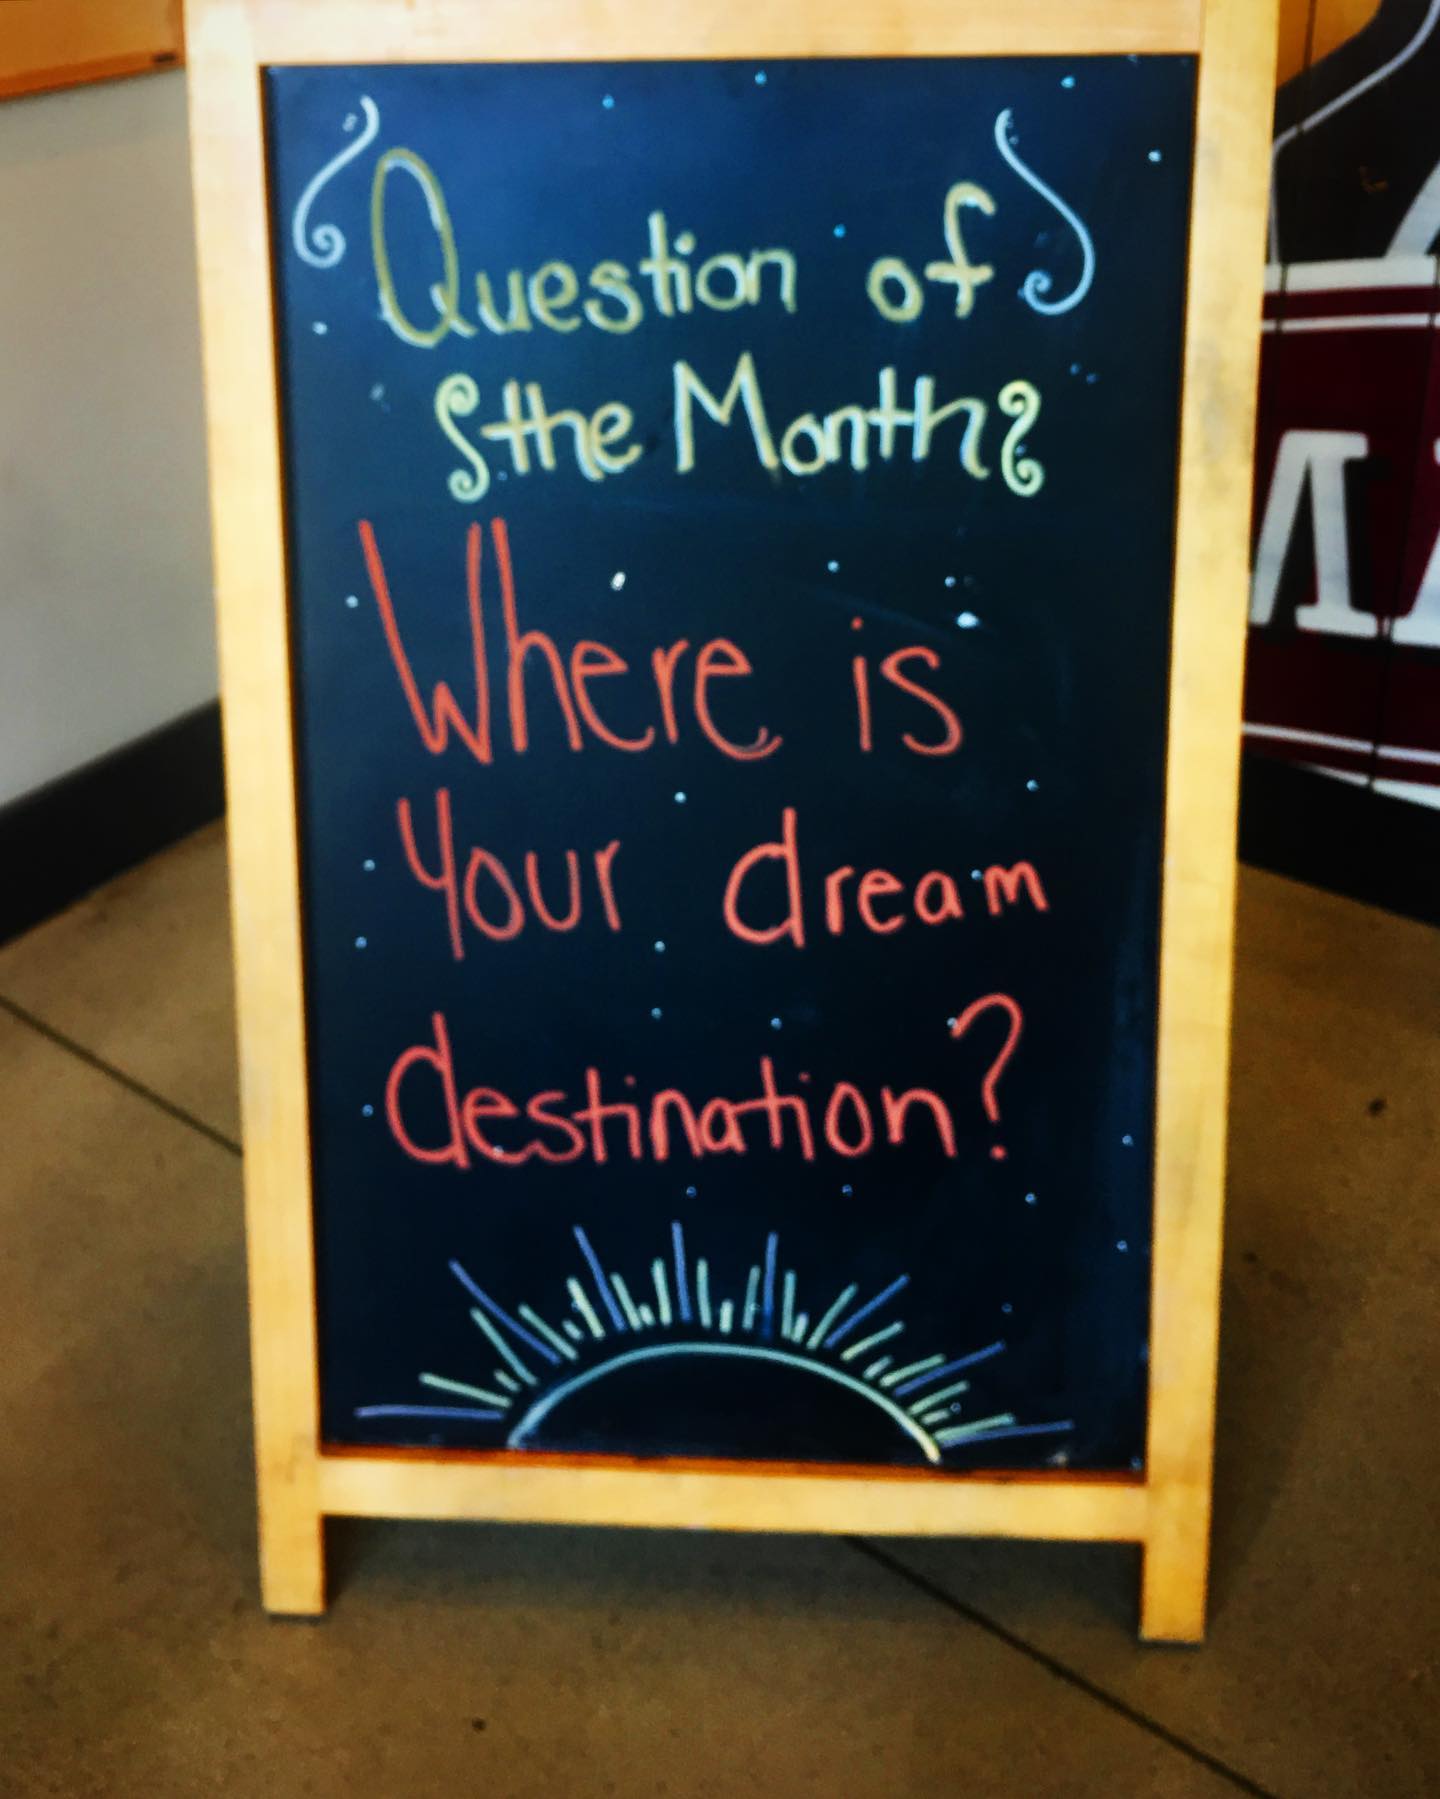 Question of
the Month
Where is
Your dream
destination?